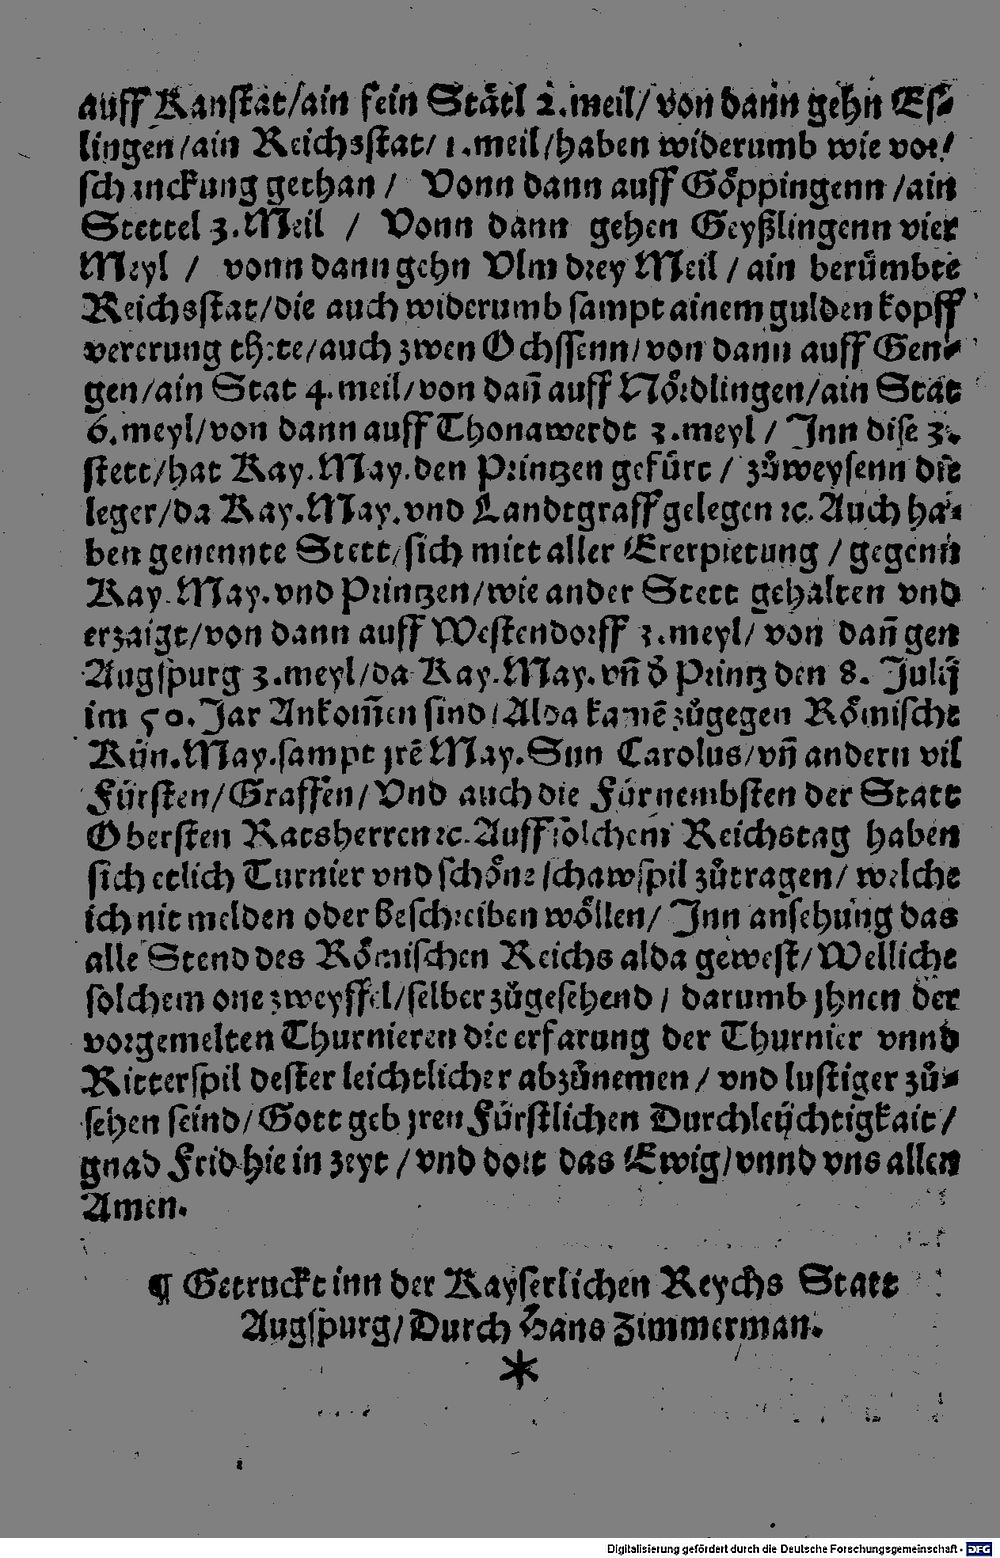 auff Kanstat/ain fein Stätl 2.meil/von dann gehn Eß⸗
lingen/ain Reichsstat/1.meil/haben widerumb wie vor/
schanckung gethan / Vonn dann auff Göppingenn /ain
Stettel 3.Meil / Vonn dann gehen Geyßlingenn vier
Meyl / vonn dann gehn Vlm drey Meil / ain berümbte
Reichsstat/die auch widerumb sampt ainem gulden kopff
vererung thete/auch zwen Ochssenn/von dann auff Gen⸗
gen/ain Stat 4.meil/von dañ auff Nördlingen/ain Stat
6.meyl/von dann auff Thonawerdt 3.meyl / Jnn dise 3.
stett/hat Kay.May.den Printzen gefürt / zůweysenn die
leger/da Kay.May.vnd Landtgraff gelegen ꝛc. Auch ha⸗
ben genennte Stett/sich mitt aller Ererpietung / gegenn
Kay.May.vnd Printzen/wie ander Stett gehalten vnd
erzaigt/von dann auff Westendorff 3.meyl/ von dañ gen
Augspurg 3.meyl/da Kay.May.vñ ď Printz den 8. Julij
im 50.Jar Ankom̃en sind/Alda kamẽ zůgegen Römische
Kün.May.sampt jrẽ May.Sun Carolus/vñ andern vil
Fürsten/Graffen/Vnd auch die Fürnembsten der Statt
Obersten Ratsherren ꝛc.Auff solchem Reichstag haben
sich etlich Turnier vnd schöne schawspil zůtragen/ welche
ich nit melden oder beschreiben wöllen/ Jnn ansehung das
alle Stend des Römischen Reichs alda gewest/Welliche
solchem one zweyffel/selber zůgesehend / darumb jhnen der
vorgemelten Thurnieren die erfarung der Thurnier vnnd
Ritterspil dester leichtlicher abzůnemen / vnd lustiger zů⸗
sehen seind/Gott geb jren Fürstlichen Durchleüchtigkait/
gnad Frid hie in zeyt /vnd dort das Ewig/vnnd vns allen
Amen.
¶ Getruckt inn der Kayserlichen Reychs Statt
Augspurg/Durch Hans Zimmerman.
*
Digitalisierung gefördert durch die Deutsche Forschungsgemeinschaft - DFG